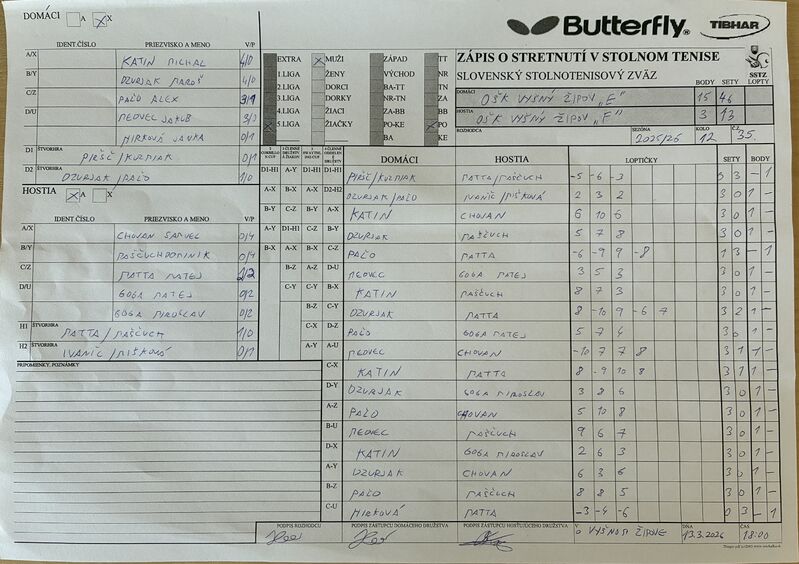 DOMÁCI A X
IDENT.ČÍSLO PRIEZVISKO A MENO V/P
A/X KATIN MICHAL 4/0
B/Y DZURJAK MAROŠ 4/0
C/Z PAĽO ALEX 3/1
D/U MEDVEC JAKUB 3/0
MIRKOVÁ JANKA 0/1
D1 ŠTVORHRA PIRŠČ/KUZMIAK 0/1
D2 ŠTVORHRA DZURJAK/PAĽO 1/0
HOSTIA A X
IDENT ČÍSLO PRIEZVISKO A MENO V/P
A/X CHOVAN SAMUEL 0/4
B/Y PAŠČUCH DOMINIK
C/Z MATTA MATEJ 2/2
D/U GOGA MATEJ 0/2
GOGA MIROSLAV 0/2
H1 ŠTVORHRA MATTA/PAŠČUCH 1/0
H2 ŠTVORHRA IVANIČ/MIŠKOVÁ 0/1
PRIPOMIENKY, POZNÁMKY
Butterfly TIBHAR
EXTRA MUŽI ZÁPAD TT
1.LIGA ŽENY VÝCHOD NR
2.LIGA DORCI BA-TT TN
3.LIGA DORKY NR-TN ZA
4.LIGA ŽIACI ZA-BB BB
5.LIGA ŽIAČKY PO-KE PO
BA KE
ZÁPIS O STRETNUTÍ V STOLNOM TENISE
SLOVENSKÝ STOLNOTENISOVÝ ZVÄZ
SSTZ
BODY SETY LOPTY
DOMÁCI OŠK VYŠNÝ ŽIPOV „E" 15 46
HOSTIA OŠK VYŠNÝ ŽIPOV „F" 3 13
ROZHODCA SEZÓNA 2025/26 KOLO 12 Č.Z. 35.
DOMÁCI HOSTIA LOPTIČKY SETY BODY
D1-H1 PIRŠČ/KUZMIAK MATTA/PAŠČUCH -5 -6 -3 0 3 - 1
D2-H2 DZURJAK/PAĽO IVANIČ/MIŠKOVÁ 2 3 2 3 0 1 -
A-X KATIN CHOVAN 6 10 6 3 0 1 -
B-Y DZURJAK PAŠČUCH 5 7 8 3 0 1 -
C-Z PAĽO MATTA -6 -9 9 -8 1 3 - 1
D-U MEDVEC GOGA MATEJ 3 5 3 3 0 1 -
B-X KATIN PAŠČUCH 8 7 3 3 0 1 -
C-Y DZURJAK MATTA 8 -10 9 -6 7 3 2 1 -
D-Z PAĽO GOGA MATEJ 5 7 4 3 0 1 -
A-U MEDVEC CHOVAN -10 7 7 8 3 1 1 -
C-X KATIN MATTA 8 -9 10 8 3 1 1 -
D-Y DZURJAK GOGA MIROSLAV 3 8 6 3 0 1 -
A-Z PAĽO CHOVAN 5 10 8 3 0 1 -
B-U MEDVEC PAŠČUCH 9 6 7 3 0 1 -
D-X KATIN GOGA MIROSLAV 2 6 3 3 0 1 -
A-Y DZURJAK CHOVAN 6 3 6 3 0 1 -
B-Z PAĽO PAŠČUCH 8 8 5 3 0 1 -
C-U MIRKOVÁ MATTA -3 -4 -6 0 3 - 1
PODPIS ROZHODCU PODPIS ZÁSTUPCU DOMÁCEHO DRUŽSTVA PODPIS ZÁSTUPCU HOSŤUJÚCEHO DRUŽSTVA V VYŠNOM ŽIPOVE DŇA 13.3.2026 ČAS 18:00